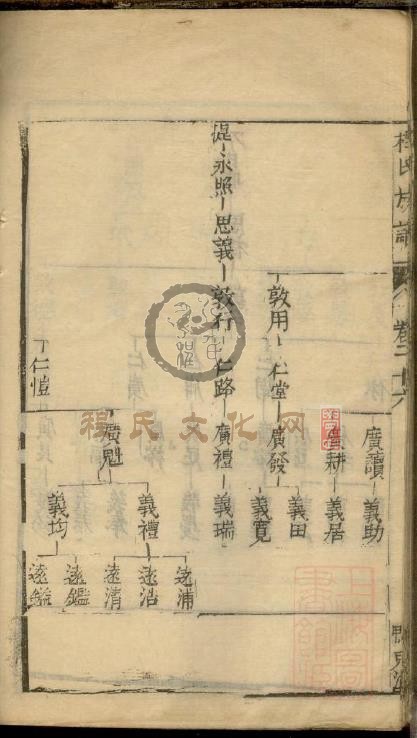 程氏族譜
卷二十六
廣讀 義助
廣耕 義居
敦用 仁堂 廣發 義田
義寬
永照 思義 敦行 仁路 廣禮 義瑞
廣魁 義禮 遠浦
遠沿
遠清
義均 遠鑑
遠鎰
丁仁愷
程氏文化网